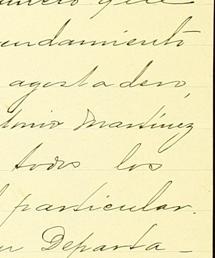 número que
endamiento
agostadero,
tonio Martínez
todos los
l particular.
u Departa-